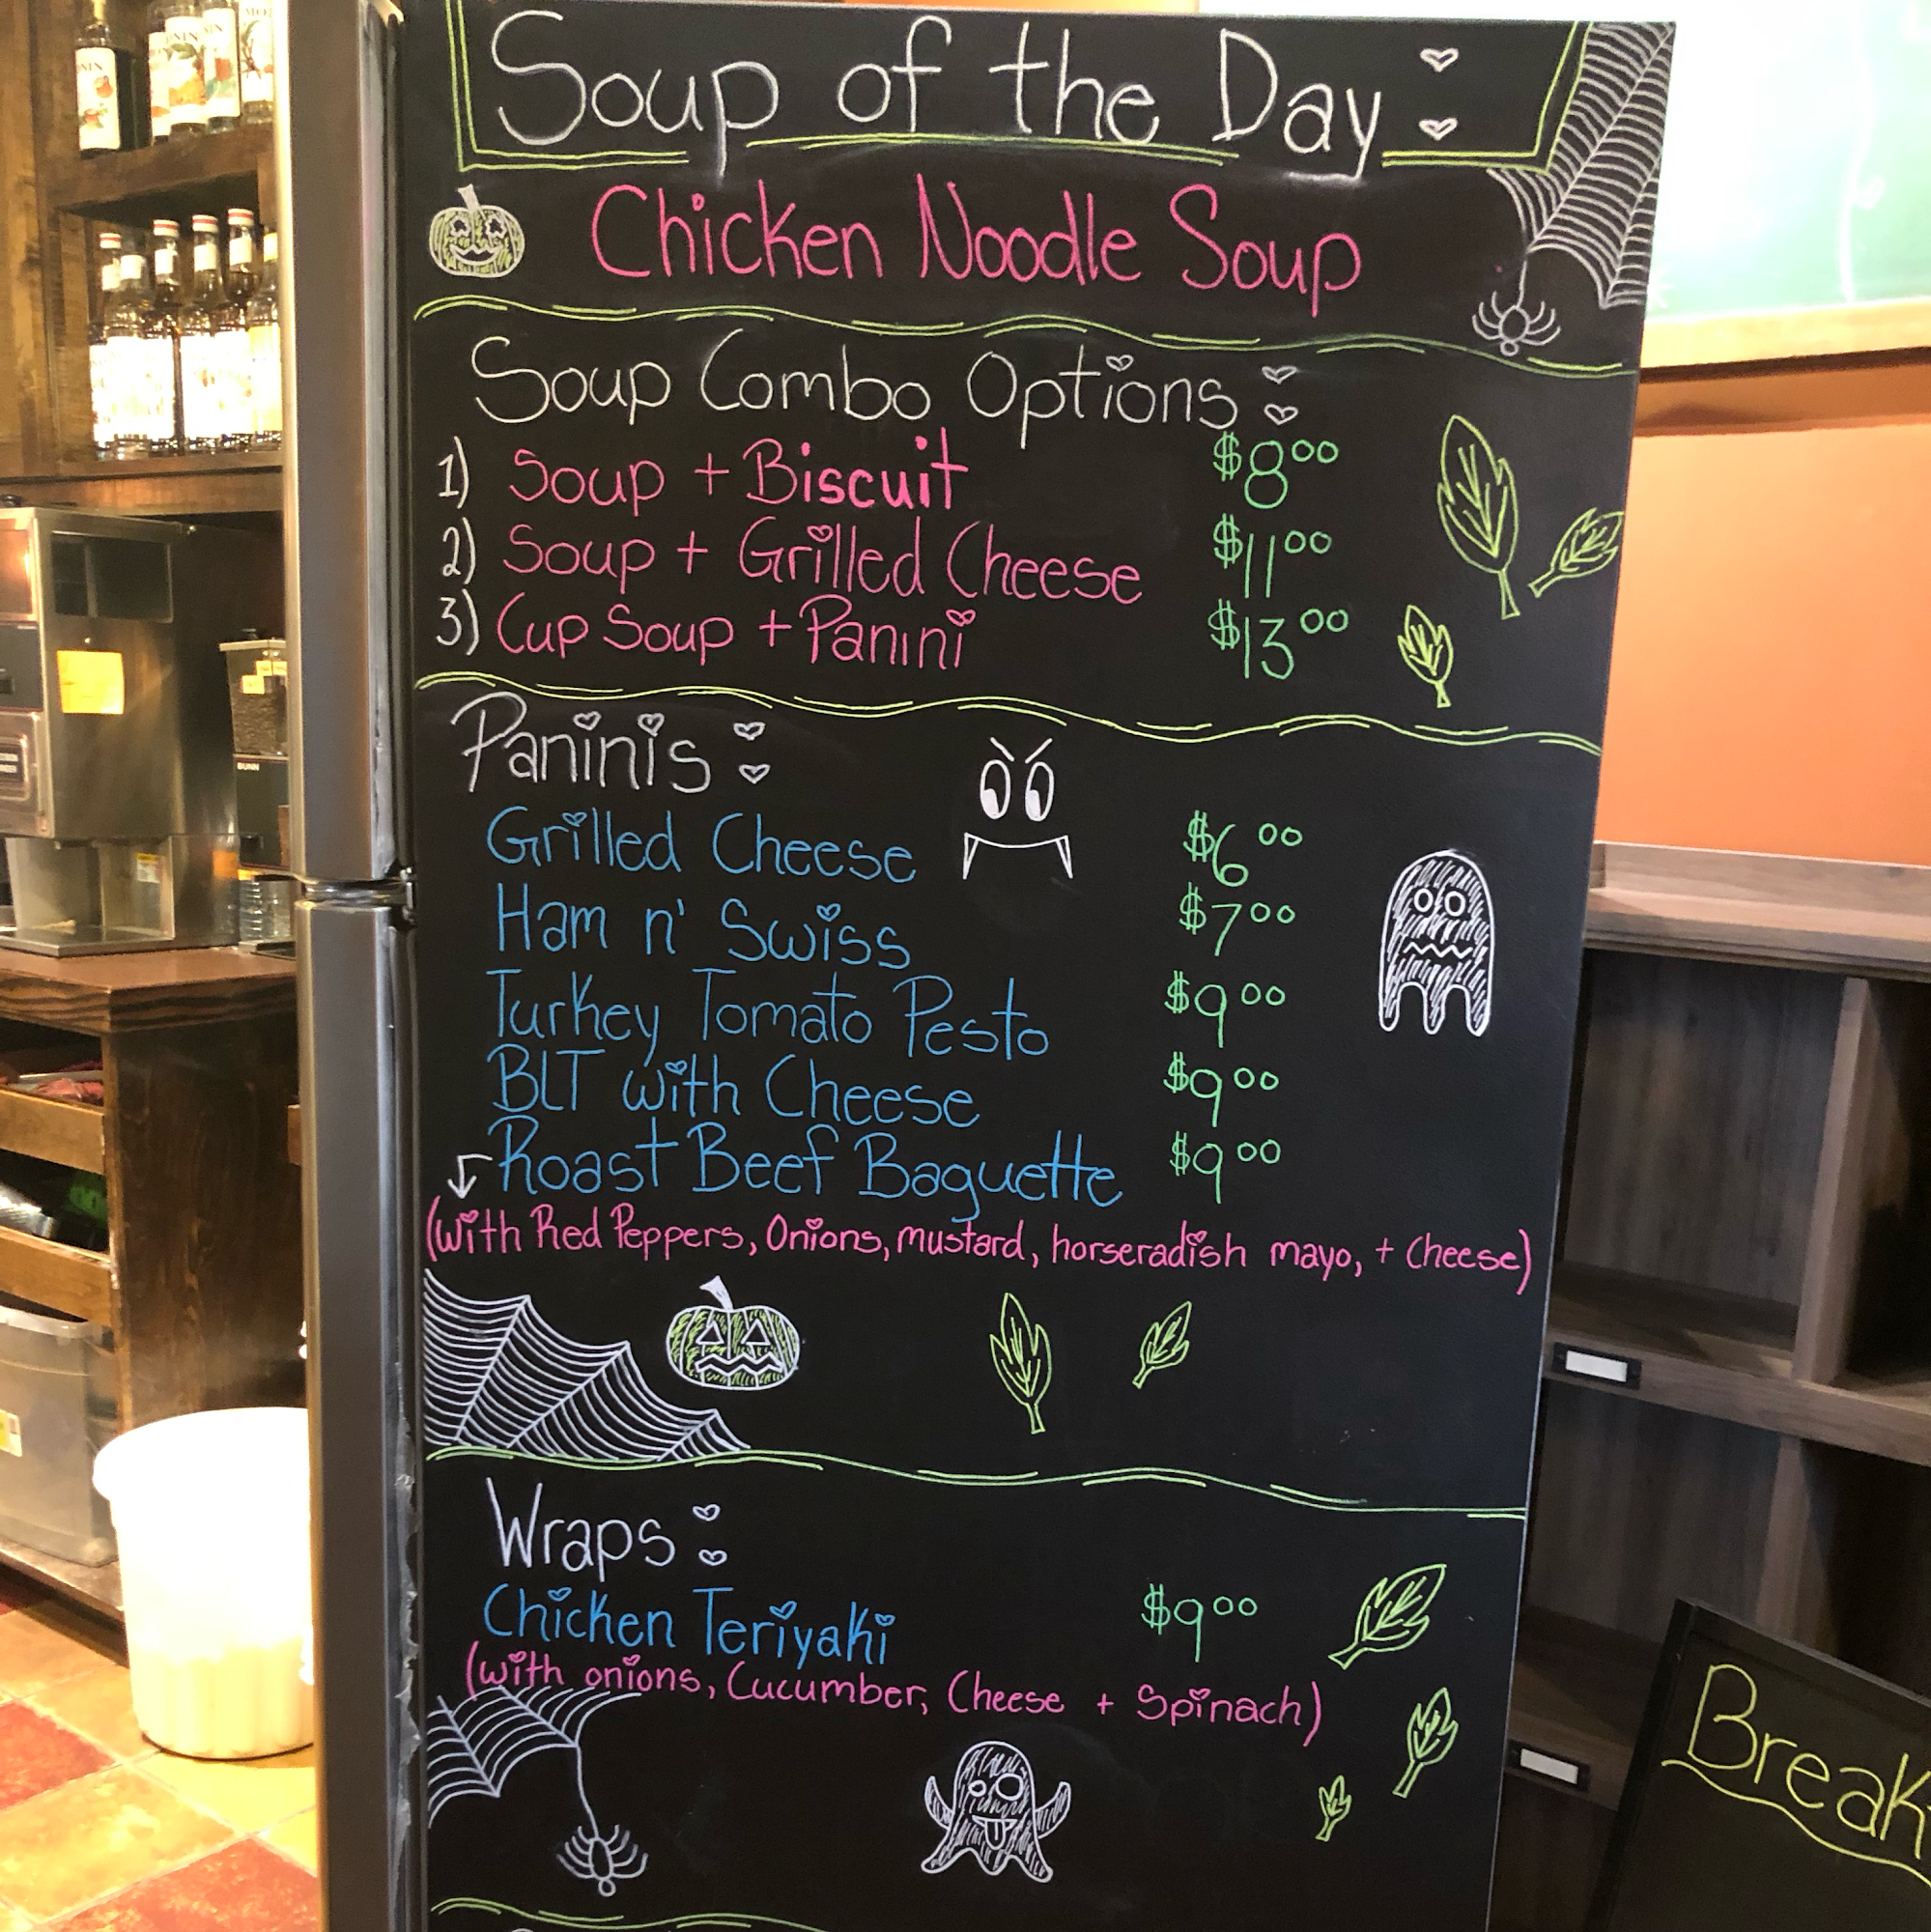 Soup of the Day:
Chicken Noodle Soup
Soup Combo Options:
1) Soup + Biscuit $8.00
2) Soup + Grilled Cheese $11.00
3) Cup Soup + Panini $13.00
Paninis:
Grilled Cheese $6.00
Ham n' Swiss $7.00
Turkey Tomato Pesto $9.00
BLT with Cheese $9.00
Roast Beef Baguette $9.00
(with Red Peppers, Onions, mustard, horseradish mayo, + Cheese)
Wraps:
Chicken Teriyaki $9.00
(with onions, Cucumber, Cheese + Spinach)
Break
BUNN